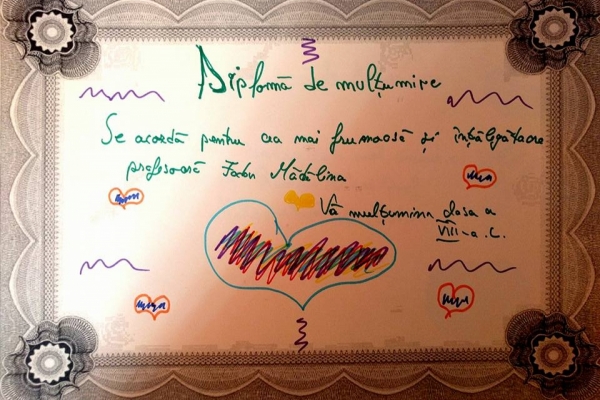 Diplomă de mulțumire
Se acordă pentru cea mai frumoasă și
profesoară Mădălina
Vă mulțumim clasa a
VIII-a C.